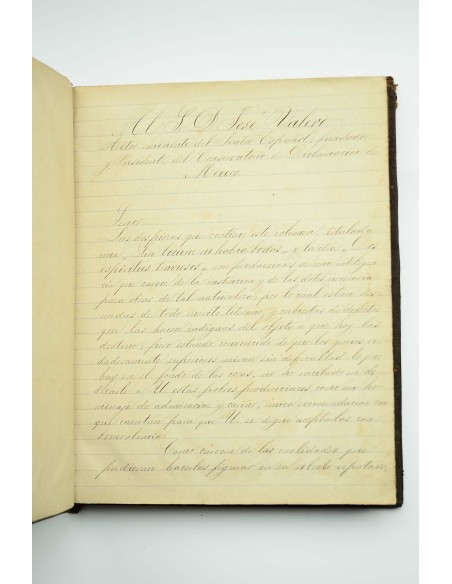 Al S. D. José Valero
Actor eminente del Teatro Español, fundador
y Presidente del Conservatorio de Declamacion de
Mexico.
Señor
Las dos piezas que contiene este volumen, titulada
una, "Sin locura no habria bodas" y la otra "Dos
espíritus traviesos" son producciones de una inteligencia
que carece de la instruccion y de las dotes necesarias
para obras de tal naturaleza; por lo cual estan des-
nudas de todo merito literario, y cubiertas de defectos
que las hacen indignas del objeto a que hoy las
destino; pero estando convencido de que los genios ver-
daderamente superiores miran sin dificultad lo que
hay en el fondo de las cosas, no he vacilado en de-
dicarle a U. estas pobres producciones como un ho-
menaje de admiracion y cariño, unica recomendacion con
que cuentan para que U. se digne aceptarlas con
benevolencia.
Como carecen de las cualidades que
pudieran hacerlas figurar en su selecto repertorio,